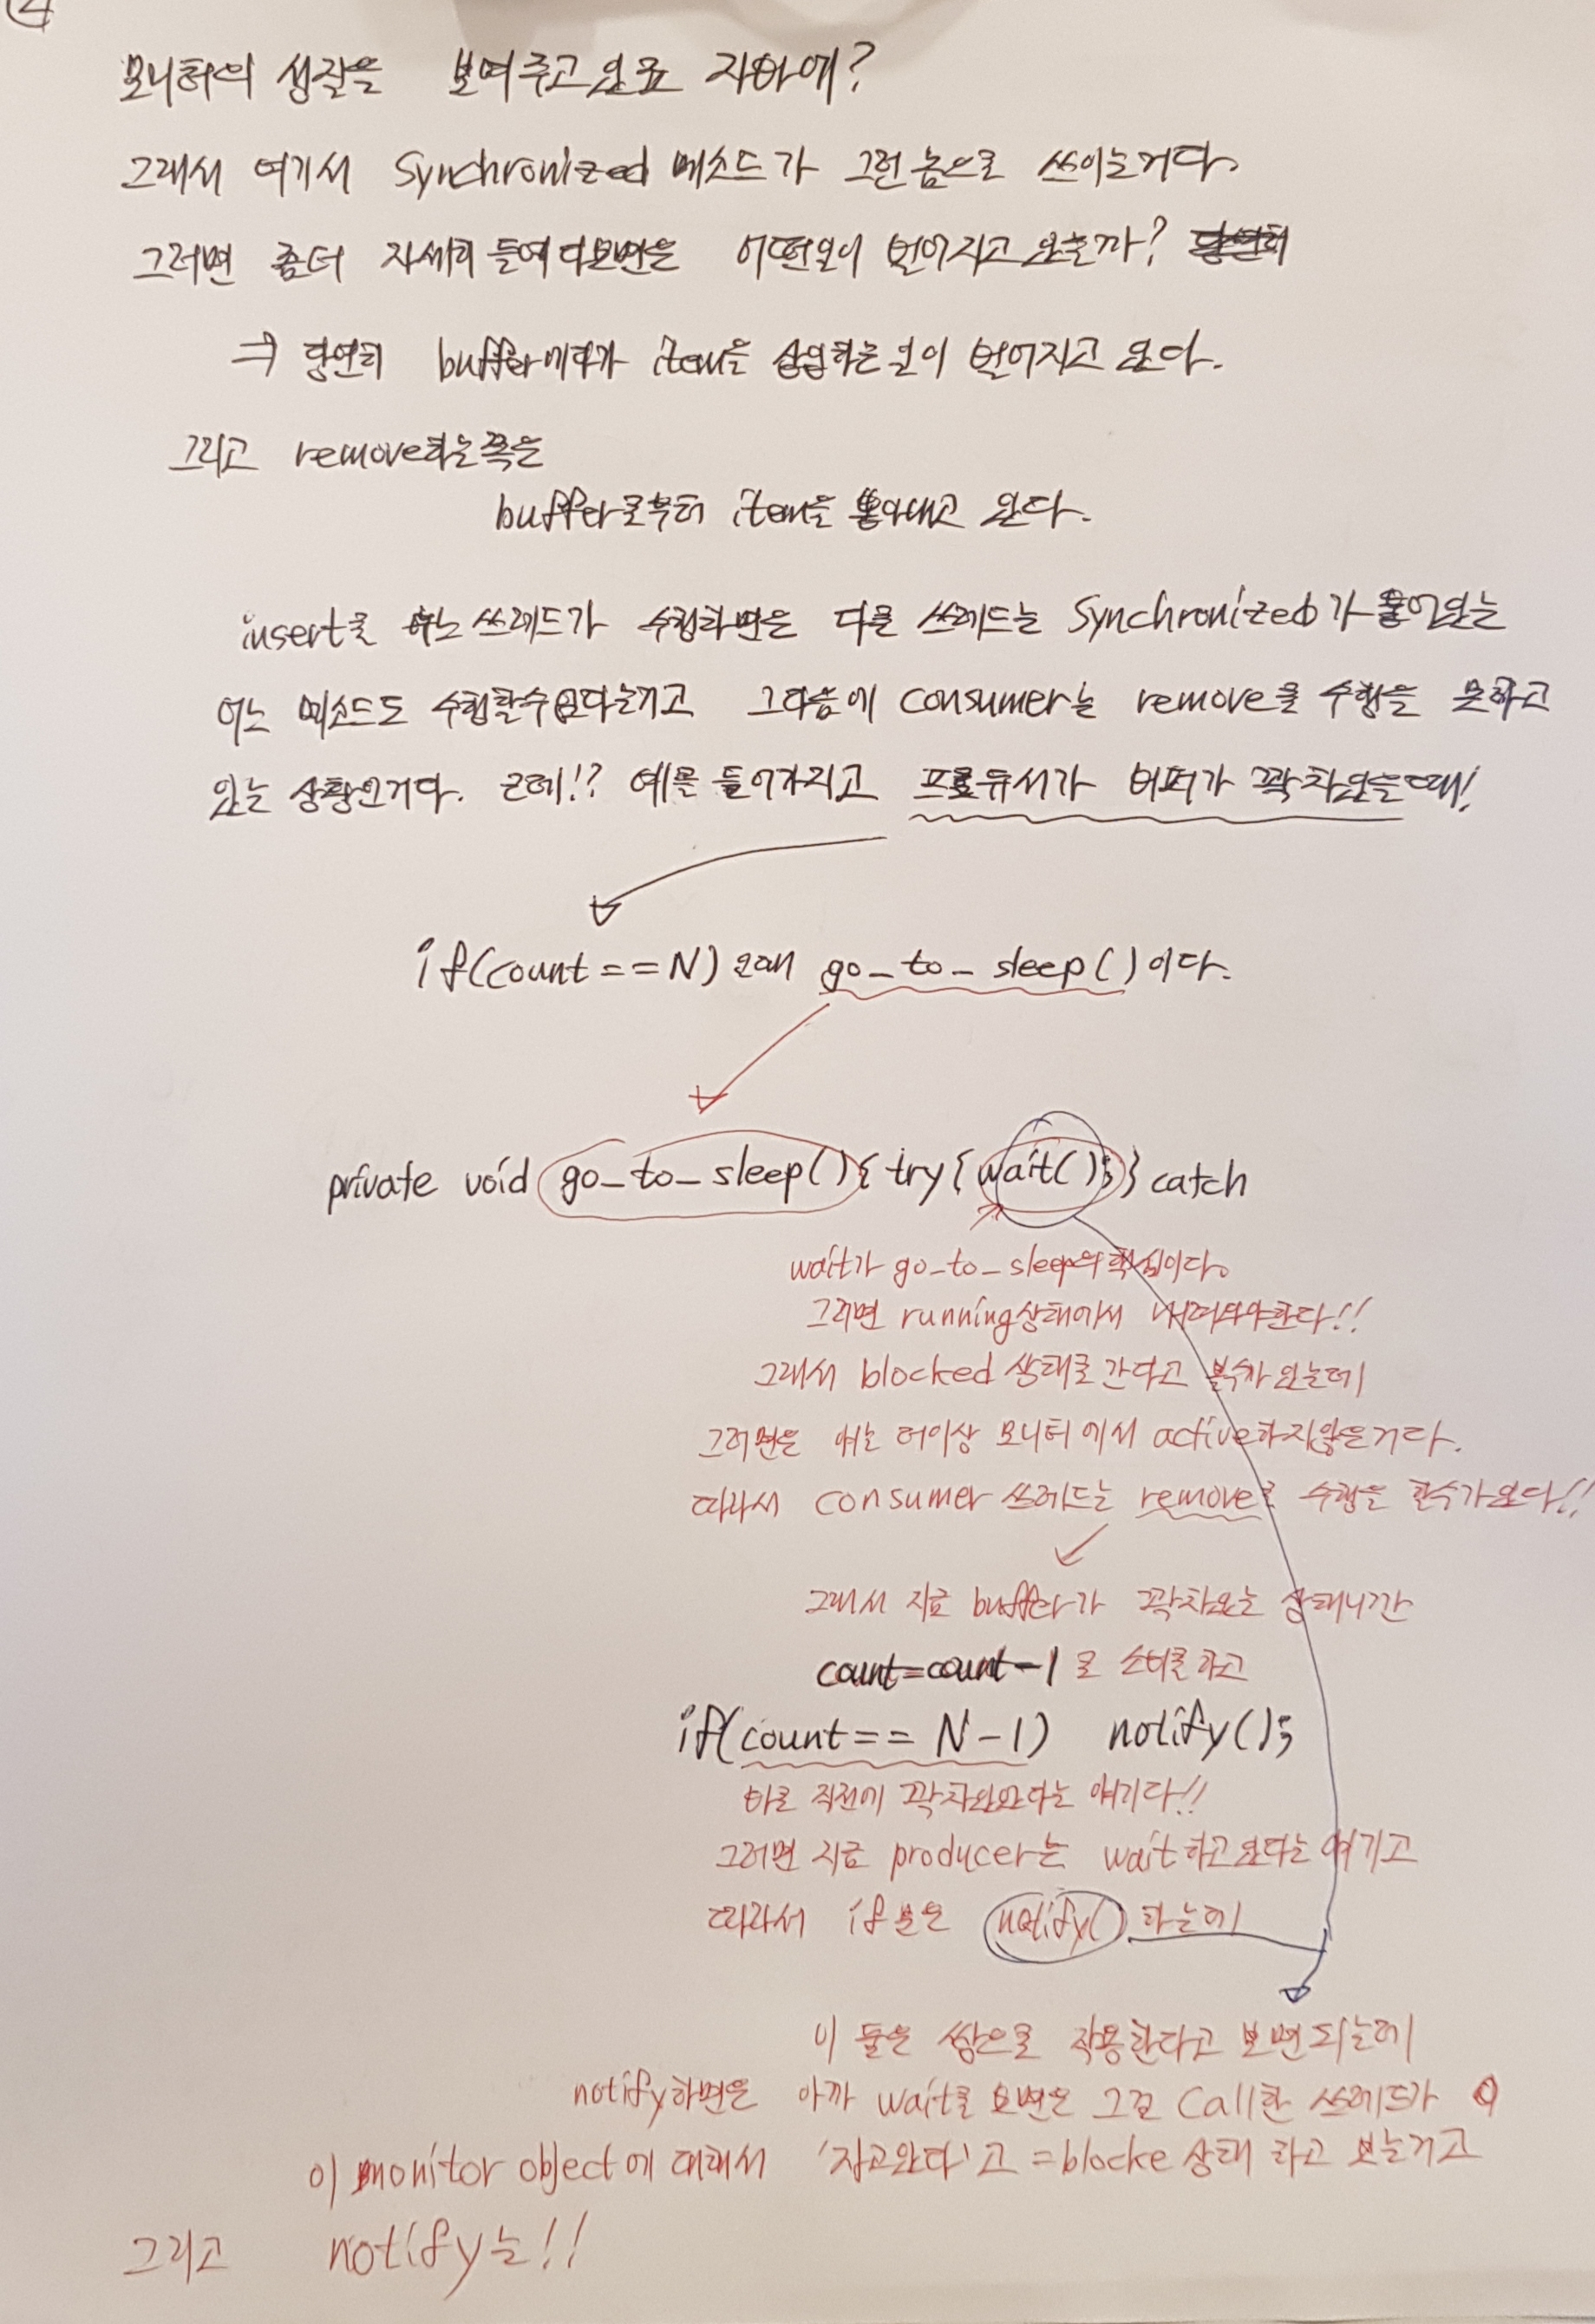 ④
모니터의 성질을 보여주고있죠 자바에?
그래서 여기서 Synchronized 메소드가 그런놈으로 쓰이는거다.
그러면 좀더 자세히 들여다보면은 어떤일이 벌어지고있을까? 당연히
⇒ 당연히 buffer에다가 item을 삽입하는일이 벌어지고 있다.
그리고 remove하는쪽은
buffer로부터 item을 뽑아내고 있다.
insert를 어느 쓰레드가 수행하면은 다른 쓰레드는 Synchronized가 붙어있는
어느 메소드도 수행할수없다는거고 그다음에 consumer는 remove를 수행을 못하고
있는 상황인거다. 근데!? 예를 들어가지고 프로듀서가 버퍼가 꽉차있을때!
if(count==N) 일때 go_to_sleep()이다.
private void go_to_sleep(){ try{ wait();} catch
wait가 go_to_sleep의 핵심이다.
그러면 running상태에서 내려와야한다!!
그래서 blocked 상태로 간다고 볼수가 있는데
그러면은 얘는 더이상 모니터에서 active하지않은거다.
따라서 consumer 쓰레드는 remove를 수행을 할수가있다!!
그래서 지금 buffer가 꽉차있는 상태니깐
count=count-1로 소비를하고
if(count== N-1) notify();
바로 직전에 꽉차있었다는 얘기다!!
그러면 지금 producer는 wait하고있다는 얘기고
따라서 if문은 notify() 하는데
이 둘은 쌍으로 작용한다고 보면되는데
notify하면은 아까 wait를 보면은 그걸 Call한 쓰레드가
이 monitor object에 대해서 '자고있다'고 =blocke 상태 라고 보는거고
그리고 notify는!!